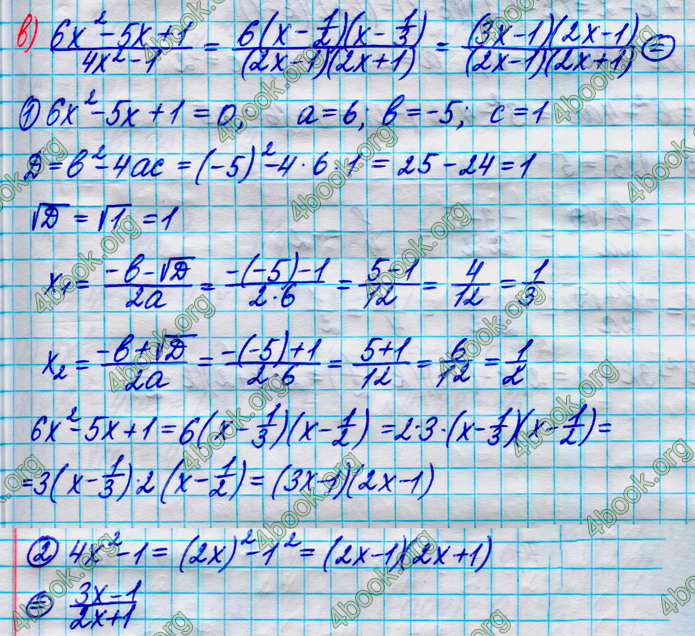 в) (6x² - 5x + 1)/(4x² - 1) = (6(x - 1/2)(x - 1/3))/((2x-1)(2x+1)) = ((3x-1)(2x-1))/((2x-1)(2x+1)) ⊜
① 6x² - 5x + 1 = 0, a = 6; b = -5; c = 1
Д = b² - 4ac = (-5)² - 4 · 6 · 1 = 25 - 24 = 1
√Д = √1 = 1
x₁ = (-b - √Д)/(2a) = (-(-5) - 1)/(2·6) = (5-1)/12 = 4/12 = 1/3
x₂ = (-b + √Д)/(2a) = (-(-5) + 1)/(2·6) = (5+1)/12 = 6/12 = 1/2
6x² - 5x + 1 = 6(x - 1/3)(x - 1/2) = 2·3·(x - 1/3)(x - 1/2) =
= 3(x - 1/3)·2(x - 1/2) = (3x-1)(2x-1)
② 4x² - 1 = (2x)² - 1² = (2x-1)(2x+1)
⊜ (3x-1)/(2x+1)
4book.org